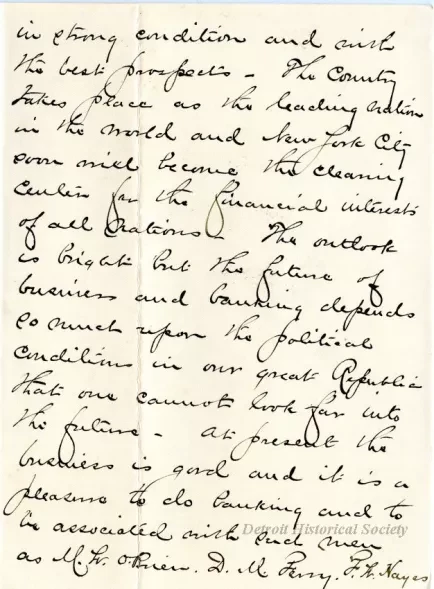 in strong condition and with
the best prospects – The Country
takes place as the leading nation
in the world and New York City
soon will become the clearing
center for the financial interests
of all Nations – The outlook
is bright but the future of
business and banking depends
so much upon the political
conditions in our great Republic
that one cannot look far into
the future – at present the
business is good and it is a
pleasure to do banking and to
be associated with such men
as M. W. O'Brien. D. M Ferry. F. W. Hayes
Detroit Historical Society